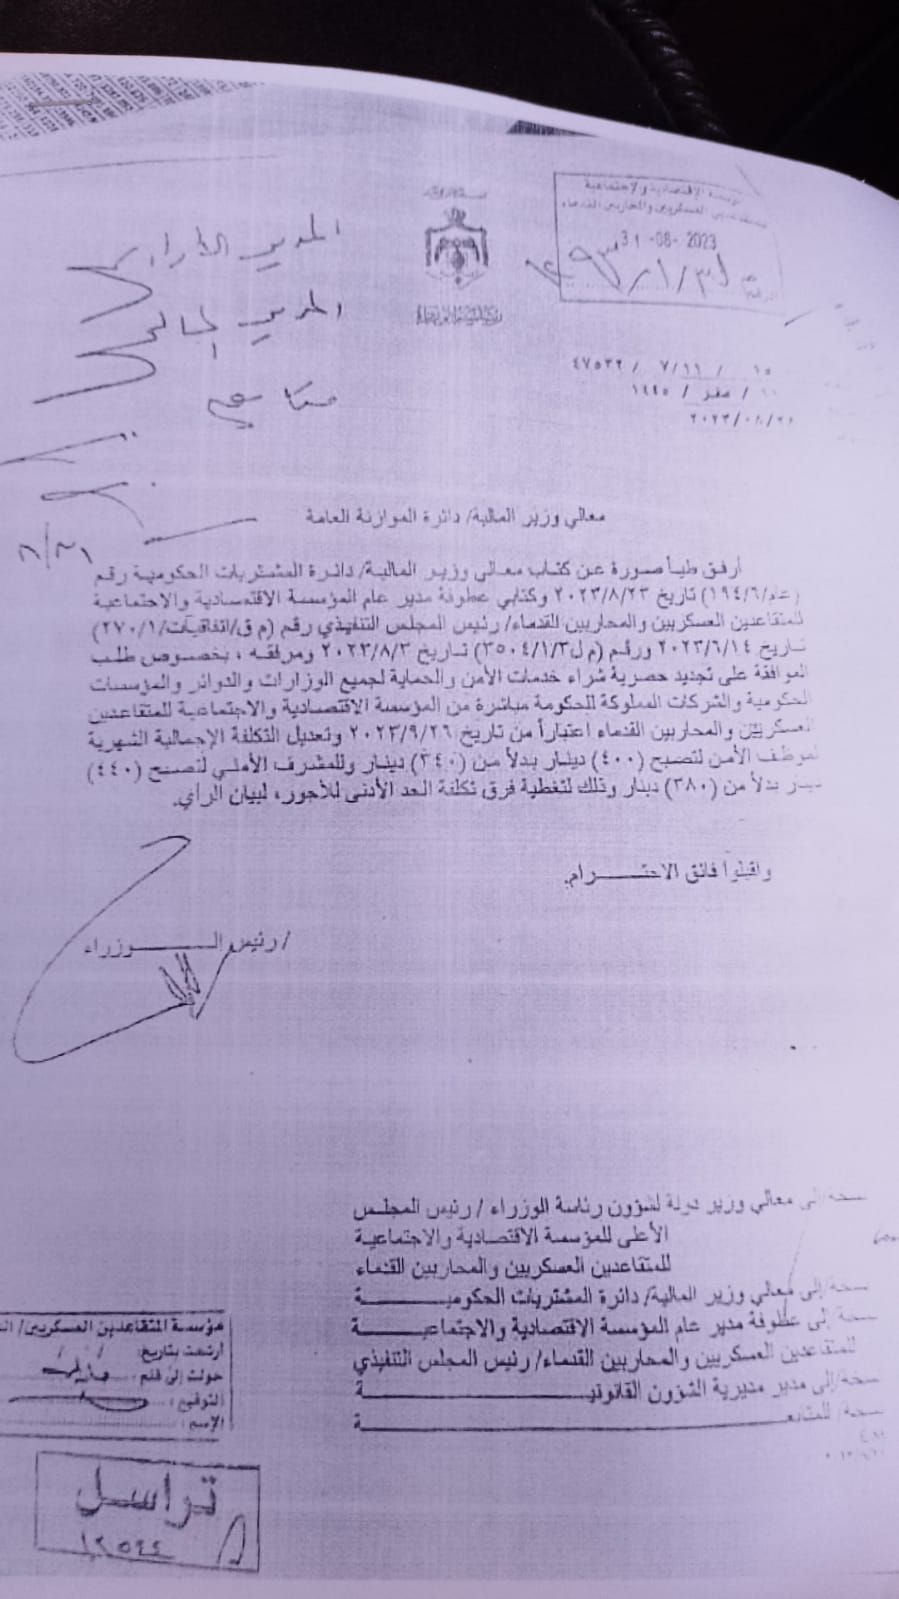 المؤسسة الإقتصادية والإجتماعية
للمتقاعدين العسكريين والمحاربين القدماء
31 -08- 2023
المدير الاداري
المدير المالي
١٥ / ١١ / ٧ / ٤٧٥٣٢
/ صفر / ١٤٤٥
معالي وزير المالية/ دائرة الموازنة العامة
أرفق طياً صورة عن كتاب معالي وزير المالية/ دائرة المشتريات الحكومية رقم
(عام/١٩٤/٦) تاريخ ٢٠٢٣/٨/٢٣ وكتابي عطوفة مدير عام المؤسسة الاقتصادية والاجتماعية
للمتقاعدين العسكريين والمحاربين القدماء/ رئيس المجلس التنفيذي رقم (م ق/اتفاقيات/٢٧٠/١)
تاريخ ٢٠٢٣/٦/١٤ ورقم (م ل٣٥٠٤/١/٣) تاريخ ٢٠٢٣/٨/٣ ومرفقه ، بخصوص طلب
الموافقة على تجديد حصرية شراء خدمات الأمن والحماية لجميع الوزارات والدوائر والمؤسسات
الحكومية والشركات المملوكة للحكومة مباشرة من المؤسسة الاقتصادية والاجتماعية للمتقاعدين
العسكريين والمحاربين القدماء اعتباراً من تاريخ ٢٠٢٣/٩/٢٦ وتعديل التكلفة الإجمالية الشهرية
لموظف الأمن لتصبح (٤٠٠) دينار بدلاً من (٣٤٠) دينار وللمشرف الأمني لتصبح (٤٤٠)
دينار بدلاً من (٣٨٠) دينار وذلك لتغطية فرق تكلفة الحد الأدنى للأجور، لبيان الرأي.
واقبلوا فائق الاحتـــــرام.
/ رئيس الــــــوزراء
نسخة إلى معالي وزير دولة لشؤون رئاسة الوزراء / رئيس المجلس
الأعلى للمؤسسة الاقتصادية والاجتماعية
للمتقاعدين العسكريين والمحاربين القدماء
نسخة/إلى معالي وزير المالية/ دائرة المشتريات الحكوميــــــة
نسخة/إلى عطوفة مدير عام المؤسسة الاقتصادية والاجتماعيــــــة
للمتقاعدين العسكريين والمحاربين القدماء/ رئيس المجلس التنفيذي
نسخة/إلى مدير مديرية الشؤون القانونيــــــة
نسخة/ للمتابعــــــة
مؤسسة المتقاعدين العسكريين/
أرشفت بتاريخ: / /
حولت إلى قسم :
التوقيع :
الإسم :
تراسل
١٢٥٤٤